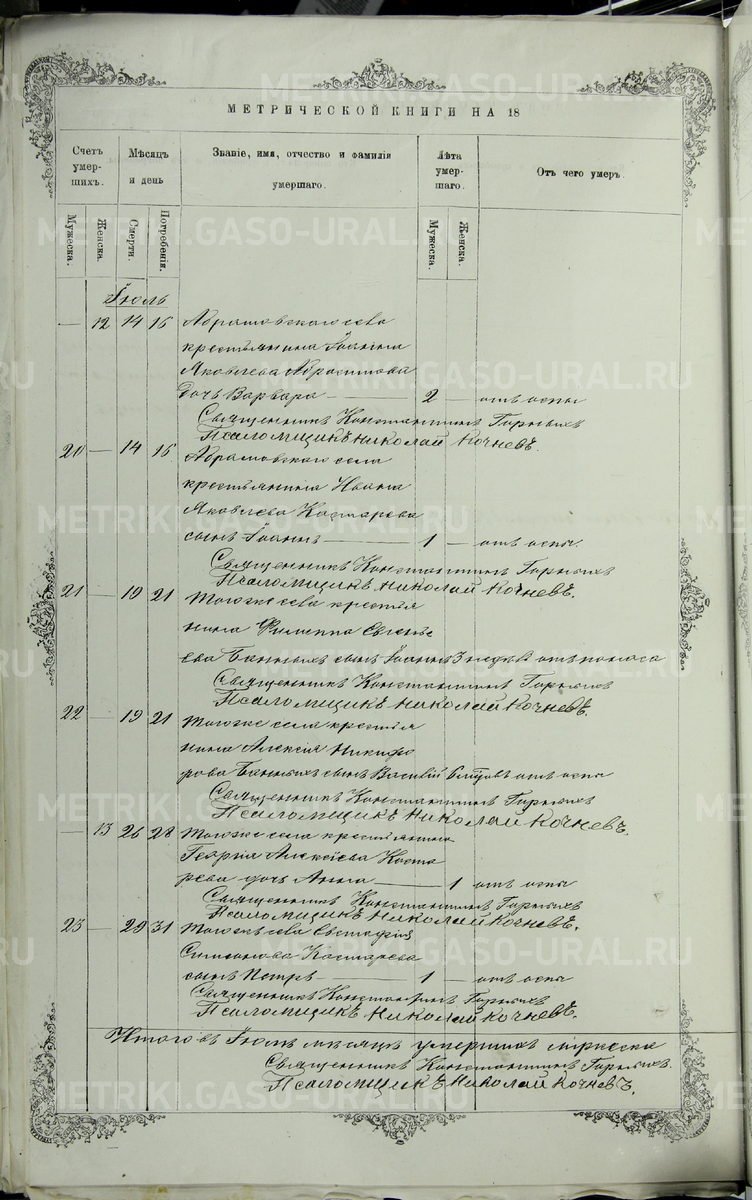 METRIKI.GASO-URAL.RU
МЕТРИЧЕСКОЙ КНИГИ НА 18
Счетъ умер-шихъ.
Мѣсяцъ и день
Званіе, имя, отчество и фамилія умершаго.
Лѣта умер-шаго.
Отъ чего умеръ.
Мужеска.
Женска.
Смерти.
Погребенія.
Мужеска.
Женска.
Іюль
— 12 14 15 Абрамовскаго села
крестьянина Іоанна
Яковлева
дочь Варвара — 2 — отъ оспы
Священникъ Константинъ Горныхъ
Псаломщикъ Николай Кочневъ.
20 — 14 15 Абрамовскаго села
крестьянина Ивана
Яковлева Костарева
сынъ Іоаннъ — 1 — отъ оспы.
Священникъ Константинъ Горныхъ
Псаломщикъ Николай Кочневъ.
21 — 19 21 Тогоже села крестья
нина Филиппа
сынъ Іоаннъ 3 недѣл отъ поноса
Священникъ Константинъ Горныхъ
Псаломщикъ Николай Кочневъ.
22 — 19 21 Тогоже села крестья
нина Алексія Никифо
рова сынъ Василій отъ оспы
Священникъ Константинъ Горныхъ
Псаломщикъ Николай Кочневъ.
— 13 26 28 Тогоже села крестьянина
Георгія Алексіева Коста
рева дочь Анна — 1 отъ оспы
Священникъ Константинъ Горныхъ
Псаломщикъ Николай Кочневъ.
23 — 29 31 Тогоже села Евстафія
Костарева
сынъ Петръ — 1 — отъ оспы
Священникъ Константинъ Горныхъ
Псаломщикъ Николай Кочневъ.
Итого въ Іюлѣ мѣсяцѣ умершихъ мужеска
Священникъ Константинъ Горныхъ.
Псаломщикъ Николай Кочневъ.